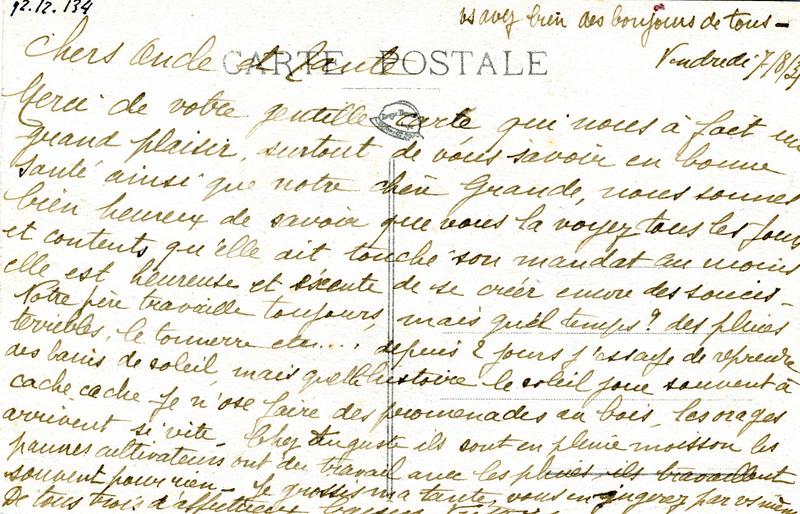 92.12.134
vs avez bien des bonjours de tous -
Vendredi 7/8/
CARTE POSTALE
Chers Oncle et Tante
Merci de votre gentille carte qui nous à fait un
grand plaisir, surtout de vous savoir en bonne
santé ainsi que notre chère Grande, nous sommes
bien heureux de savoir que vous la voyez tous les jours
et contents qu'elle ait touché son mandat au moins
elle est heureuse et de se créer encore des soucis -
Notre père travaille toujours, mais quel temps? des pluies
terribles, le tonnerre etc.... depuis 2 jours j'essaye de reprendre
des bains de soleil, mais quelle histoire le soleil joue souvent à
cache cache - Je n'ose faire des promenades au bois, les orages
arrivent si vite - Chez Auguste ils sont en pleine moisson les
pauvres cultivateurs ont du travail avec les pluies ils travaillent
souvent pour rien - Je grossis ma tante, vous en jugerez par vs même
De tous trois d'affectueux baisers